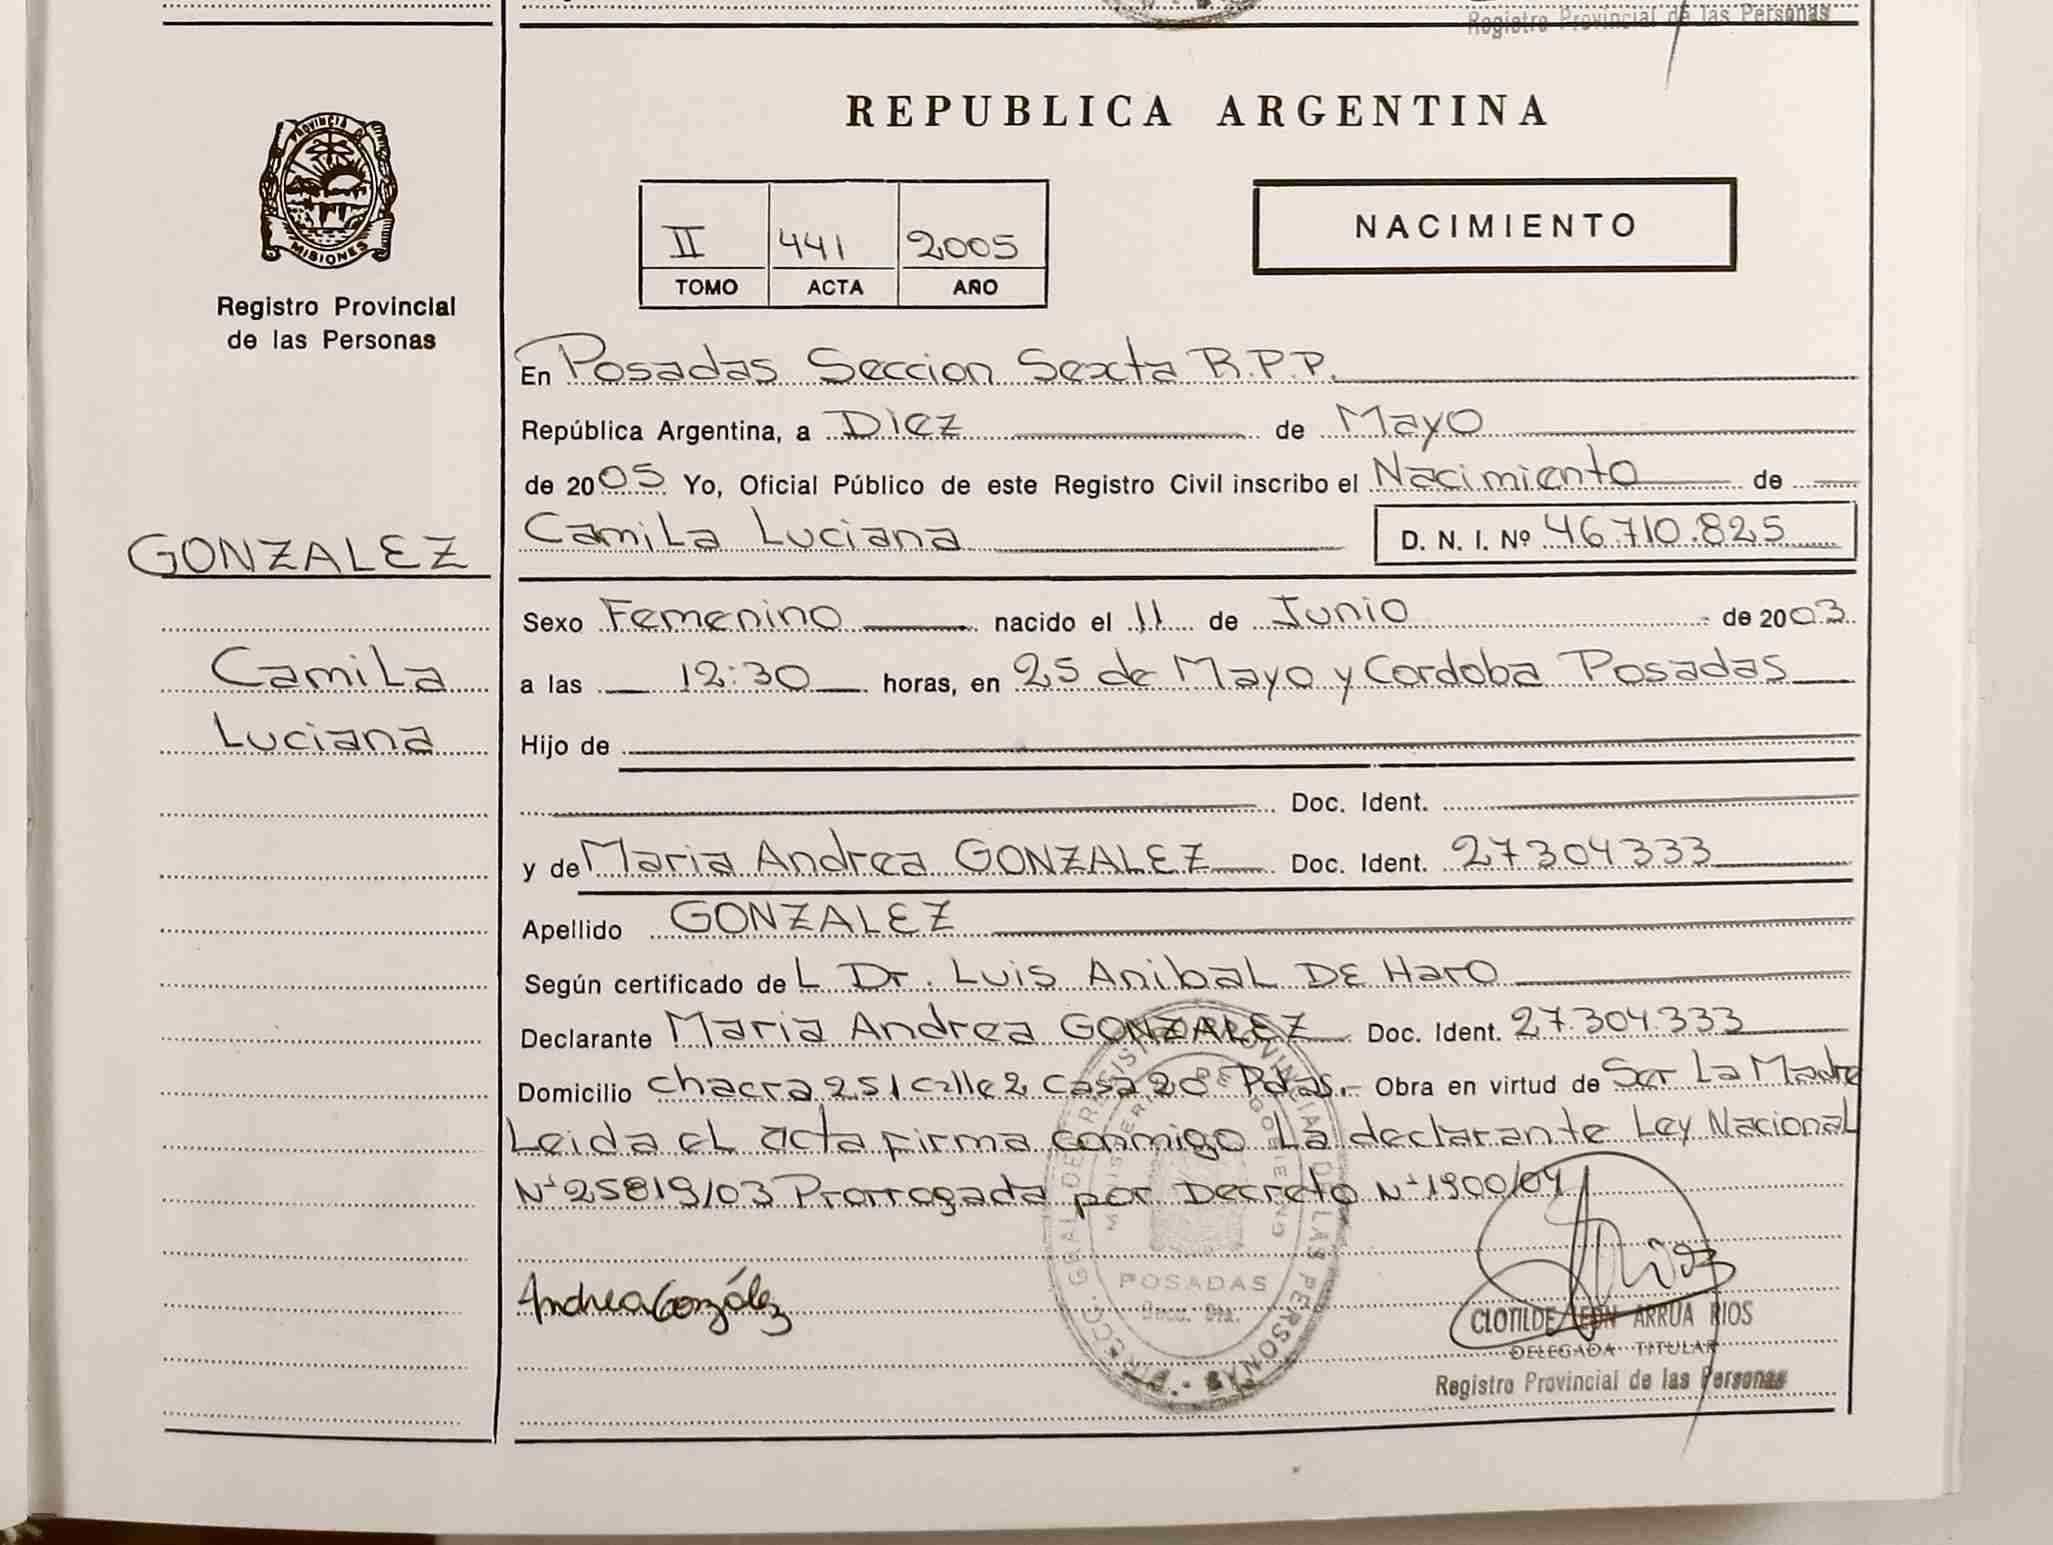 Registro Provincial de las Personas
REPUBLICA ARGENTINA
PROVINCIA D
MISIONES
Registro Provincial
de las Personas
II 441 2005
TOMO ACTA AÑO
NACIMIENTO
En Posadas Seccion Sexta R.P.P.
República Argentina, a Diez de Mayo
de 2005 Yo, Oficial Público de este Registro Civil inscribo el Nacimiento de
GONZALEZ
Camila Luciana D. N. I. Nº 46.710.825
Sexo Femenino nacido el 11 de Junio de 2003
Camila
a las 12:30 horas, en 25 de Mayo y Cordoba Posadas
Luciana
Hijo de
Doc. Ident.
y de Maria Andrea GONZALEZ Doc. Ident. 27304333
Apellido GONZALEZ
Según certificado de L Dr. Luis Anibal DE Haro
Declarante Maria Andrea GONZALEZ Doc. Ident. 27.304.333
Domicilio chacra 251 calle 2 casa 20 Pdas.- Obra en virtud de Ser La Madre
Leida el acta firma conmigo La declarante Ley Nacional
Nº 25819/03 Prorrogada por Decreto Nº 1900/04
Andrea González
DIRECC. GRAL. DEL REGISTRO PROVINCIAL DE LAS PERSONAS
MINISTERIO DE GOBIERNO
POSADAS
CLOTILDE LEON ARRUA RIOS
DELEGADA TITULAR
Registro Provincial de las Personas